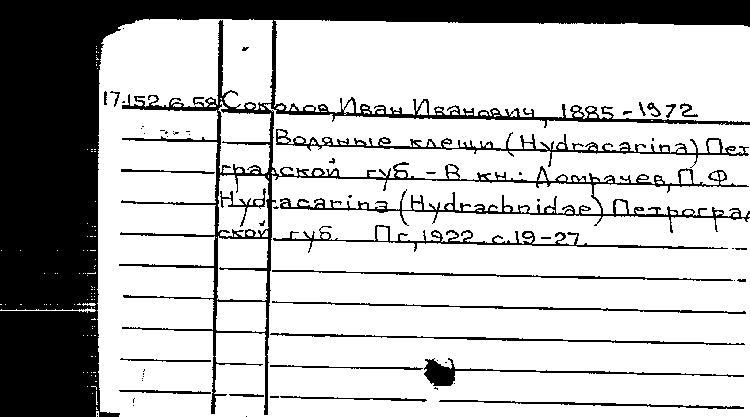 17.152.6.59 Соколов, Иван Иванович, 1885-1972
Водяные клещи (Hydracarina) Пет
градской губ. - В кн.: Домрачев, П.Ф.
Hydracarina (Hydrachnidae) Петроград
ской губ. Пг., 1922 с.19-27.